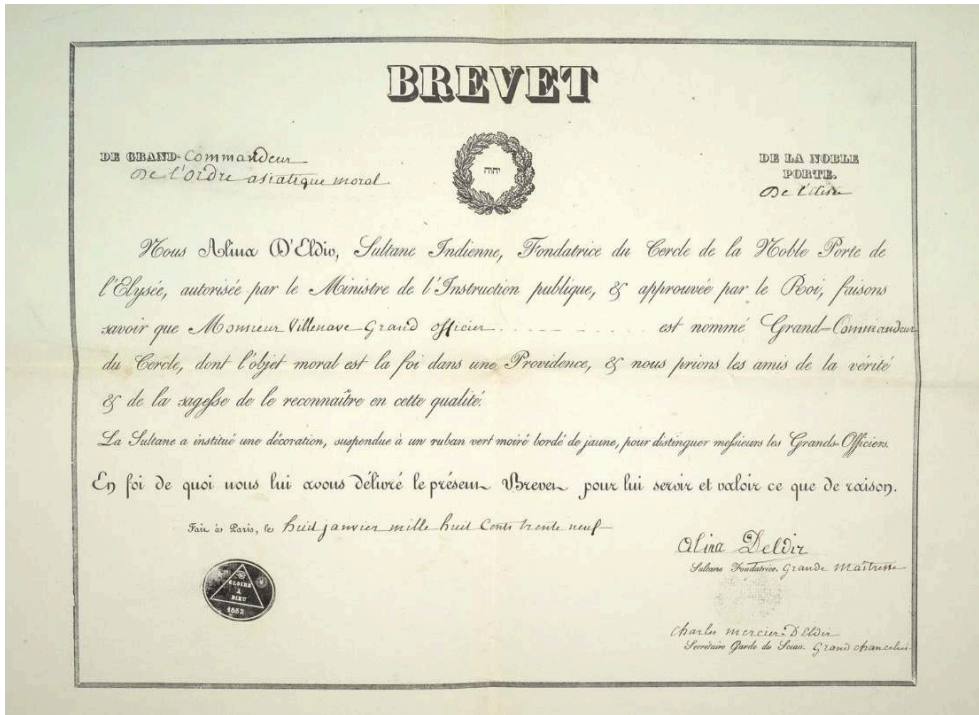 BREVET
DE GRAND-Commandeur
De l'Ordre asiatique moral
יהוה
DE LA NOBLE
PORTE.
De l'Elisée
Nous Alina D'Eldir, Sultane Indienne, Fondatrice du Cercle de la Noble Porte de
l'Elysée, autorisée par le Ministre de l'Instruction publique, & approuvée par le Roi, faisons
savoir que Monsieur Villenave Grand officier est nommé Grand-Commandeur
du Cercle, dont l'objet moral est la foi dans une Providence, & nous prions les amis de la vérité
& de la sagesse de le reconnaître en cette qualité.
La Sultane a institué une décoration, suspendue à un ruban vert moiré bordé de jaune, pour distinguer messieurs les Grands-Officiers.
En foi de quoi nous lui avons délivré le présent Brevet pour lui servir et valoir ce que de raison.
Fait à Paris, le huit janvier mille huit Cents trente neuf
Alina Deldir
Sultane Fondatrice. Grande Maîtresse
GLOIRE
A
DIEU
Charles mercier D'Eldir
Secrétaire Garde du Sceau. Grand chancelier